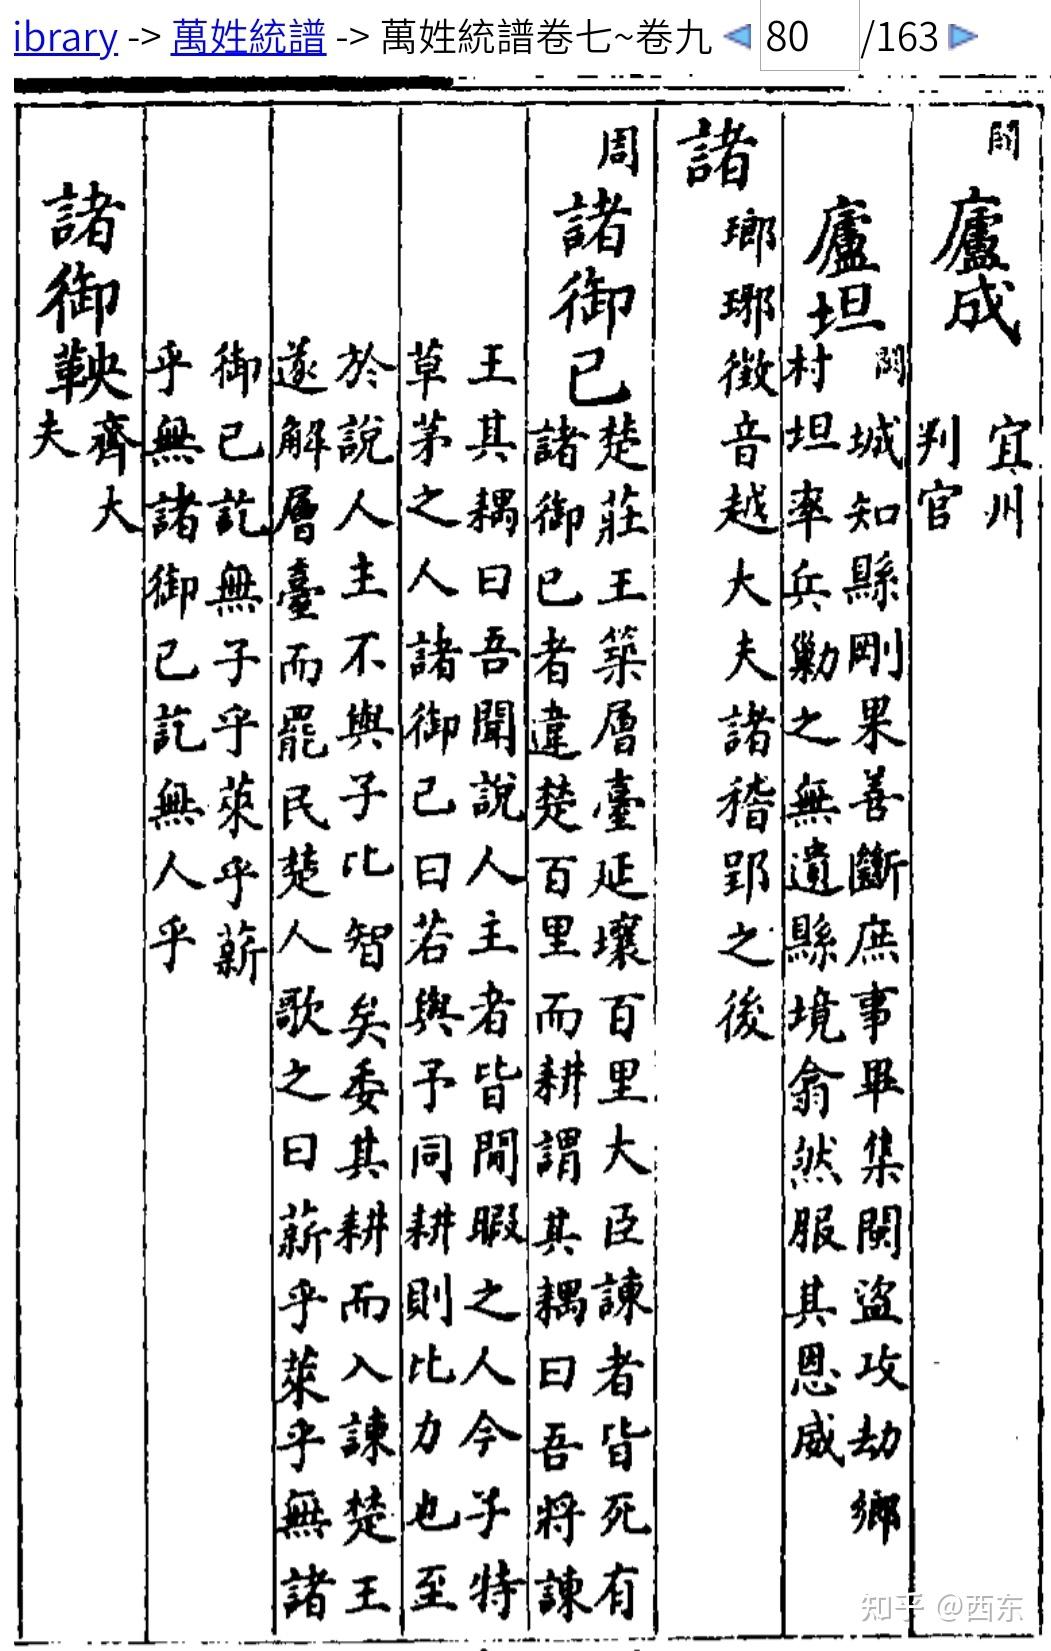 ibrary -> 萬姓統譜 -> 萬姓統譜卷七~卷九 80 /163
閻 廬成 宜州
判官
廬坦 閼城知縣剛果善斷庶事畢集閔盜攻劫鄉
村坦率兵勦之無遺縣境翕然服其恩威
諸 瑯琊徵音越大夫諸稽郢之後
周 諸御己 楚莊王築層臺延壤百里大臣諫者皆死有
諸御己者違楚百里而耕謂其耦曰吾將諫
王其耦曰吾聞說人主者皆閒暇之人今子特
草茅之人諸御己曰若與予同耕則比力也至
於說人主不與子比智矣委其耕而入諫楚王
遂解層臺而罷民楚人歌之曰薪乎萊乎無諸
御己訖無子乎萊乎薪
乎無諸御己訖無人乎
諸御鞅 齊大
夫
知乎 @西东